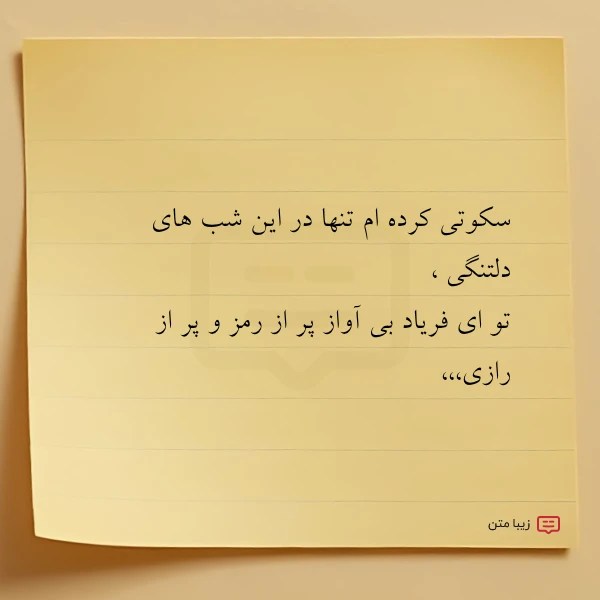 سکوتی کرده ام تنها در این شب های
دلتنگی ،
تو ای فریاد بی آواز پر از رمز و پر از
رازی،،،
زیبا متن